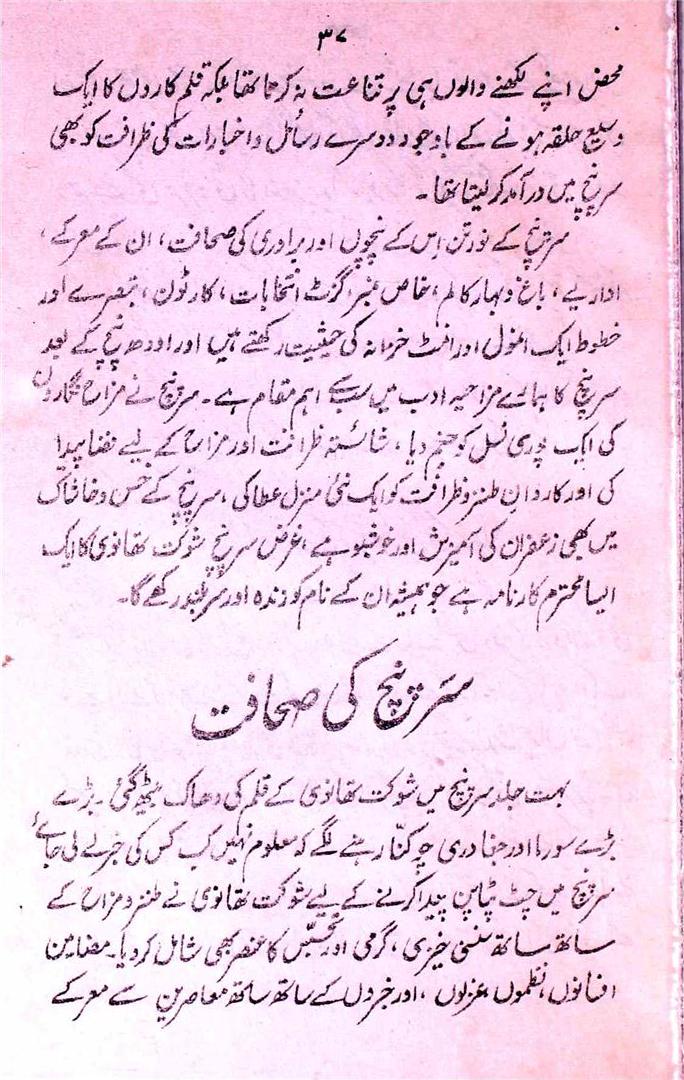 ۳۷
محض اپنے لکھنے والوں ہی پر قناعت نہ کرتا تھا بلکہ قلم کاروں کا ایک
وسیع حلقہ ہونے کے باوجود دوسرے رسائل و اخبارات کی ظرافت کو بھی
سرپنچ میں درآمد کر لیتا تھا۔
سرپنچ کے نورتن اس کے پنچوں اور برادری کی صحافت، ان کے معرکے،
اداریے، باغ و بہار کالم، خاص نمبر، گزٹ انتخابات، کارٹون، تبصرے اور
خطوط ایک انمول اور انمٹ خزانہ کی حیثیت رکھتے ہیں اور اودھ پنچ کے بعد
سرپنچ کا ہمارے مزاحیہ ادب میں سب سے اہم مقام ہے۔ سرپنچ نے مزاح نگاروں
کی ایک پوری نسل کو جنم دیا، شائستہ ظرافت اور مزاح کے لیے فضا پیدا
کی اور کاروانِ طنز و ظرافت کو ایک نئی منزل عطا کی، سرپنچ کے خس و خاشاک
میں بھی زعفران کی آمیزش اور خوشبو ہے، غرض سرپنچ شوکت تھانوی کا ایک
ایسا محترم کارنامہ ہے جو ہمیشہ ان کے نام کو زندہ اور سربلند رکھے گا۔
سرپنچ کی صحافت
بہت جلد سرپنچ میں شوکت تھانوی کے قلم کی دھاک بیٹھ گئی۔ بڑے
بڑے سورما اور جغادری چوکنّا رہنے لگے کہ معلوم نہیں کب کس کی خبر لے لی جائے،
سرپنچ میں چٹ پٹا پن پیدا کرنے کے لیے شوکت تھانوی نے طنز و مزاح کے
ساتھ ساتھ سنسنی خیزی، گرمی اور تجسّس کا عنصر بھی شامل کر دیا۔ مضامین
افسانوں، نظموں، غزلوں، اور خبروں کے ساتھ ساتھ معاصرین سے معرکے